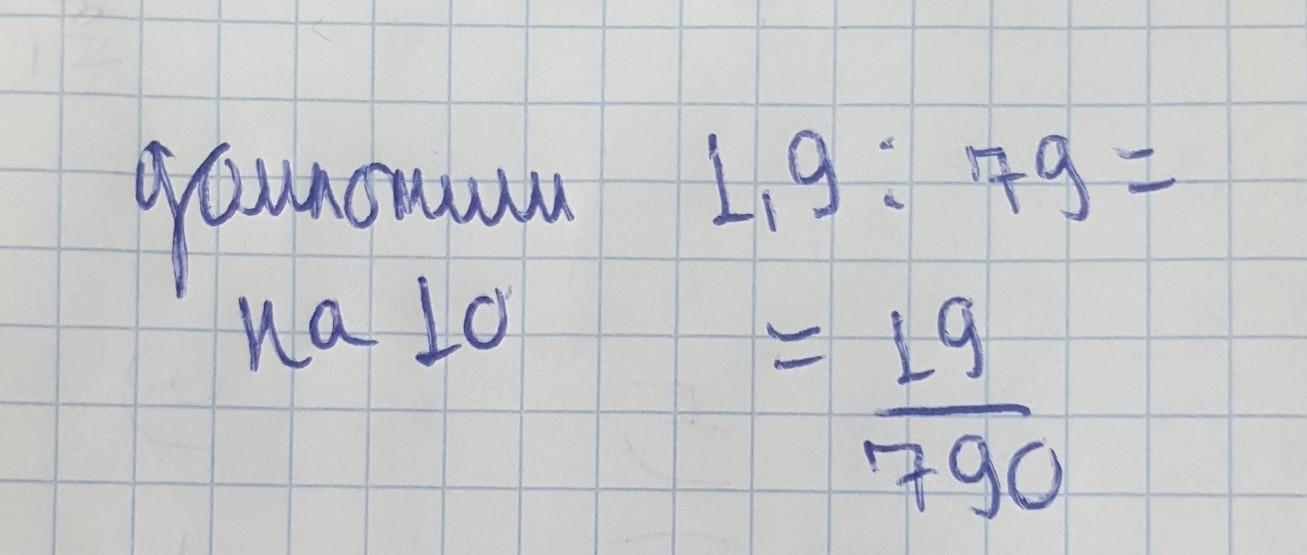 домножим 1,9 : 79 =
на 10 = 19
790